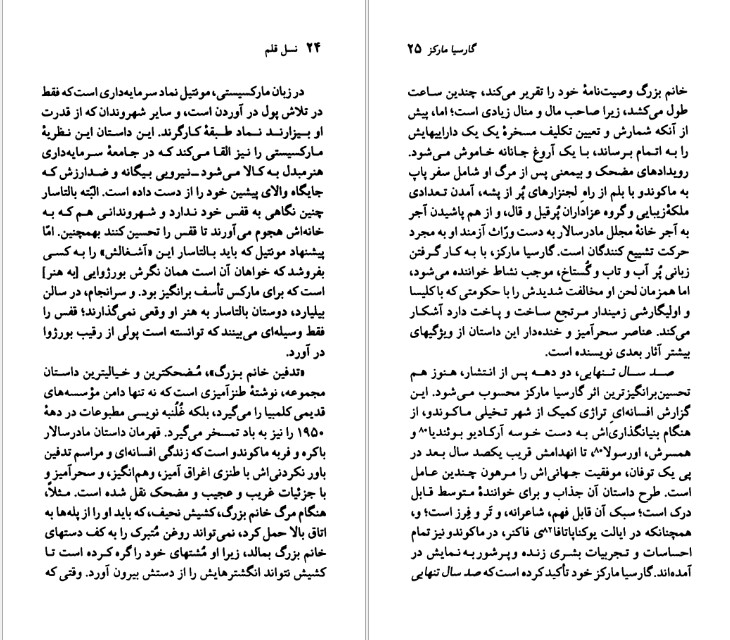 ۲۴ نسل قلم
در زبان مارکسیستی، مونتیل نماد سرمایه‌داری است که فقط
در تلاش پول در آوردن است، و سایر شهروندان که از قدرت
او بیزارند نماد طبقهٔ کارگرند. این داستان این نظریهٔ
مارکسیستی را نیز القا می‌کند که در جامعهٔ سرمایه‌داری
هنر مبدل به کالا می‌شود ــ نیرویی بیگانه و ضد ارزش که
جایگاه والای پیشین خود را از دست داده است. البّته بالتاسار
چنین نگاهی به قفس خود ندارد و شهروندانی هم که به
خانه‌اش هجوم می‌آورند تا قفس را تحسین کنند بهمچنین. امّا
پیشنهاد مونتیل که باید بالتاسار این «آشغالش» را به کسی
بفروشد که خواهان آن است همان نگرش بورژوایی [به هنر]
است که برای مارکس تأسف برانگیز بود. و سرانجام، در سالن
بیلیارد، دوستان بالتاسار به هنر او وقعی نمی‌گذارند؛ قفس را
فقط وسیله‌ای می‌بینند که توانسته است پولی از رقیب بورژوا
در آورد.
«تدفین خانم بزرگ»، مُضحکترین و خیالیترین داستان
مجموعه، نوشتهٔ طنزآمیزی است که نه تنها دامن مؤسسه‌های
قدیمی کلمبیا را می‌گیرد، بلکه غُلُنبه نویسی مطبوعات در دههٔ
۱۹۵۰ را نیز به باد تمسخر می‌گیرد. قهرمان داستان مادرسالار
باکره و فربه ماکوندو است که زندگی افسانه‌ای و مراسم تدفین
باور نکردنی‌اش با طنزی اغراق آمیز، وهم‌انگیز، و سحرآمیز و
با جزئیات غریب و عجیب و مضحک نقل شده است. مثلاً،
هنگام مرگ خانم بزرگ، کشیش نحیف، که باید او را از پله‌ها به
اتاق بالا حمل کرد، نمی‌تواند روغن مُتبرک را به کف دستهای
خانم بزرگ بمالد، زیرا او مُشتهای خود را گره کرده است تا
کشیش نتواند انگشترهایش را از دستش بیرون آورد. وقتی که
گارسیا مارکز ۲۵
خانم بزرگ وصیت‌نامهٔ خود را تقریر می‌کند، چندین ساعت
طول می‌کشد، زیرا صاحب مال و منال زیادی است؛ اما، پیش
از آنکه شمارش و تعیین تکلیف مسخرهٔ یک یک داراییهایش
را به اتمام برساند، با یک آروغ جانانه خاموش می‌شود.
رویدادهای مضحک و بیمعنی پس از مرگ او شامل سفر پاپ
به ماکوندو با بلم از راهِ لجنزارهای پُر از پشه، آمدن تعدادی
ملکهٔ زیبایی و گروه عزاداران پُرقیل و قال، و از هم پاشیدن آجر
به آجر خانهٔ مجلل مادرسالار به دست ورّاث آزمند او به مجرد
حرکت تشییع کنندگان است. گارسیا مارکز، با به کار گرفتن
زبانی پُر آب و تاب و گُستاخ، موجب نشاط خواننده می‌شود،
اما همزمان لحن او مخالفت شدیدش را با حکومتی که با کلیسا
و اولیگارشی زمیندار مرتجع ساخت و پاخت دارد آشکار
می‌کند. عناصر سحرآمیز و خنده‌دار این داستان از ویژگیهای
بیشتر آثار بعدی نویسنده است.
صد سال تنهایی، دو دهه پس از انتشار، هنوز هم
تحسین‌برانگیزترین اثر گارسیا مارکز محسوب می‌شود. این
گزارش افسانه‌ایِ تراژی کمیک از شهر تخیلی ماکوندو، از
هنگام بنیانگذاری‌اش به دست خوسه آرکادیو بوئندیا۸۰ و
همسرش، اورسولا۸۱، تا انهدامش قریب یکصد سال بعد در
پی یک توفان، موفقیت جهانی‌اش را مرهون چندین عامل
است. طرح داستان آن جذاب و برای خوانندهٔ متوسط قابل
درک است؛ سبک آن قابل فهم، شاعرانه، و تَر و فِرز است؛ و،
همچنانکه در ایالت یوکناپاتافا۸۲ی فاکنر، در ماکوندو نیز تمام
احساسات و تجربیات بشری زنده و پرشور به نمایش در
آمده‌اند. گارسیا مارکز خود تأکید کرده است که صد سال تنهایی